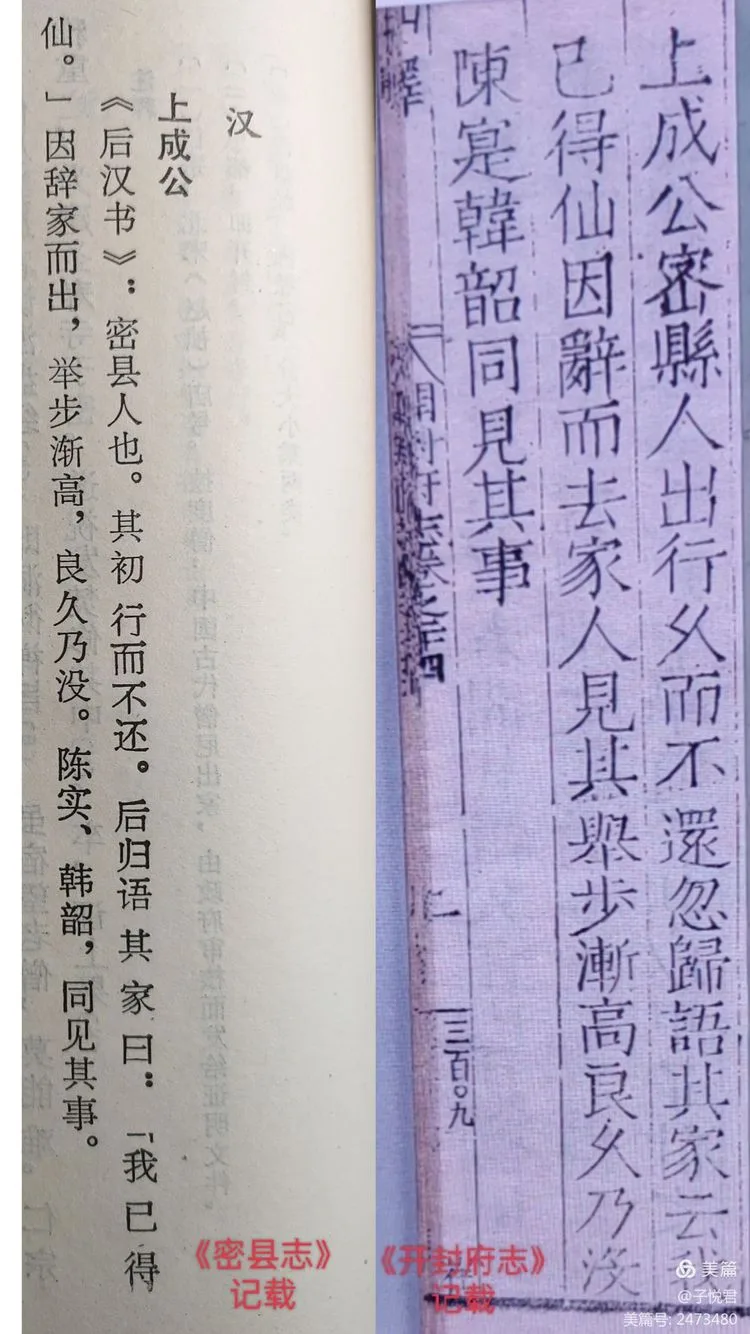 汉
上成公
《后汉书》：密县人也。其初行而不还。后归语其家曰：「我已得
仙。」因辞家而出，举步渐高，良久乃没。陈实、韩韶，同见其事。
《密县志》
记载
上成公密縣人出行久而不還忽歸語其家云我
已得仙因辭而去家人見其舉步漸高良久乃沒
陳寔韓韶同見其事
三百〇九
《开封府志》
记载
美篇
@子悦君
美篇号: 2473480